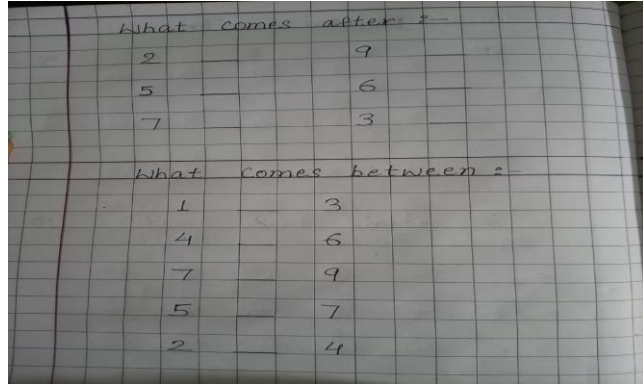 What comes after :-
2 __ 9 __
5 __ 6 __
7 __ 3 __
What comes between :-
1 __ 3
4 __ 6
7 __ 9
5 __ 7
2 __ 4